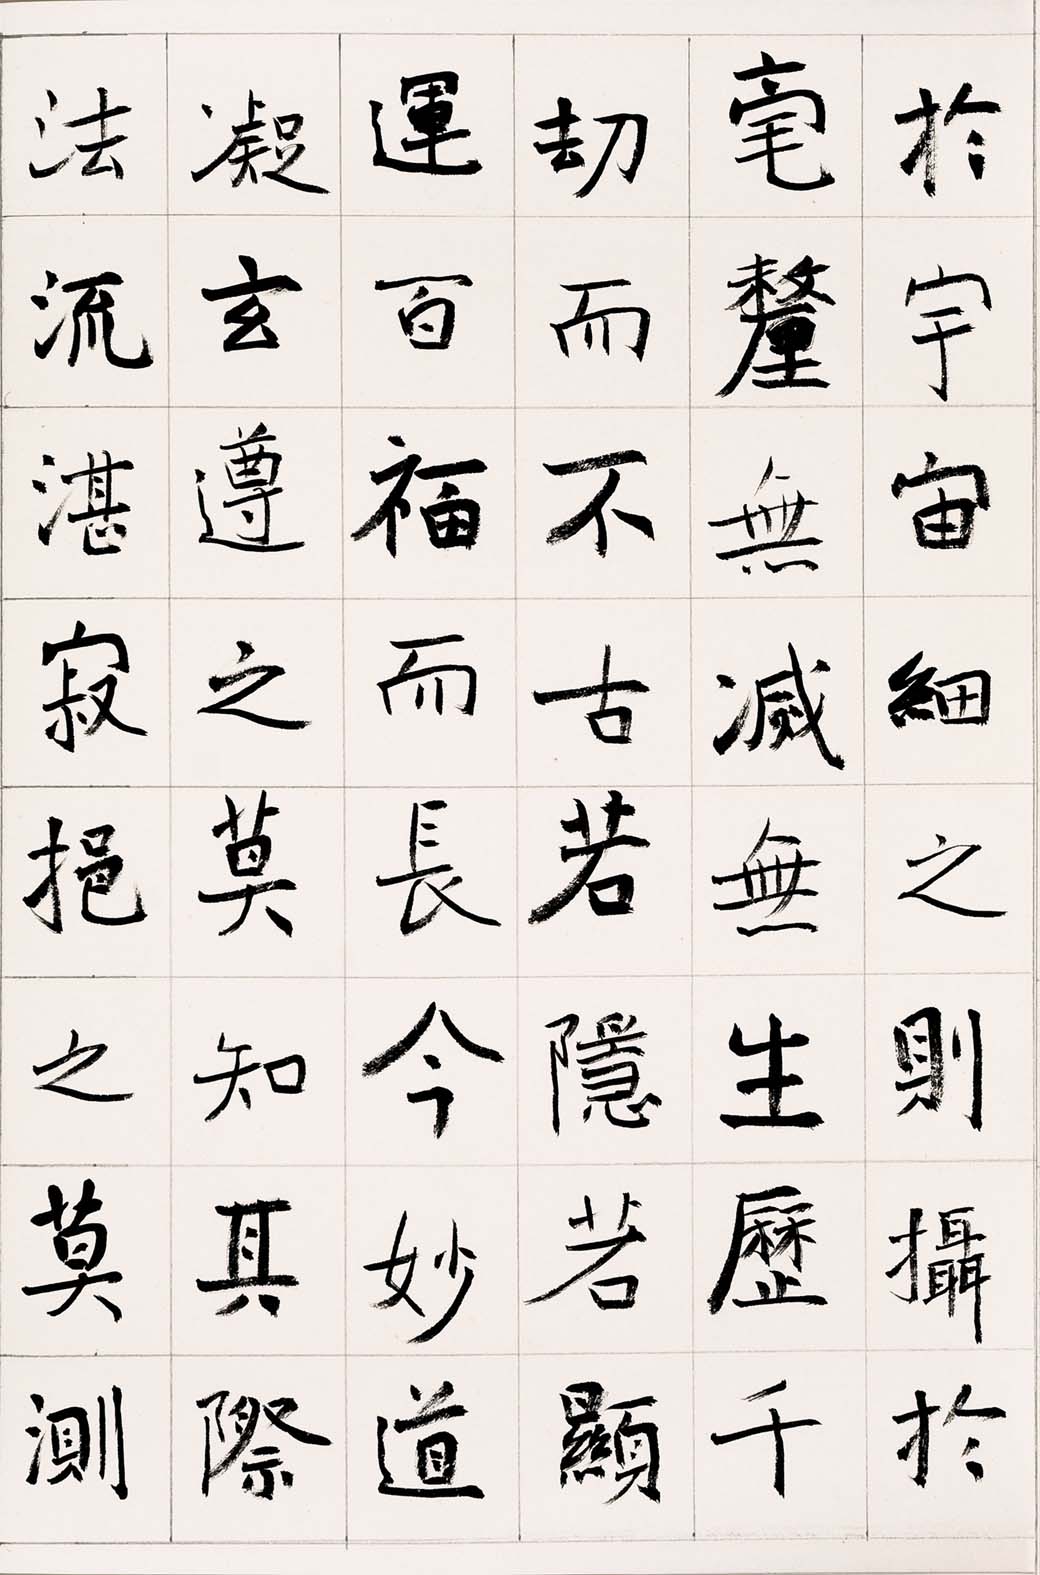 於宇宙細之則攝於
毫釐無滅無生歷千
劫而不古若隱若顯
運百福而長今妙道
凝玄遵之莫知其際
法流湛寂挹之莫測